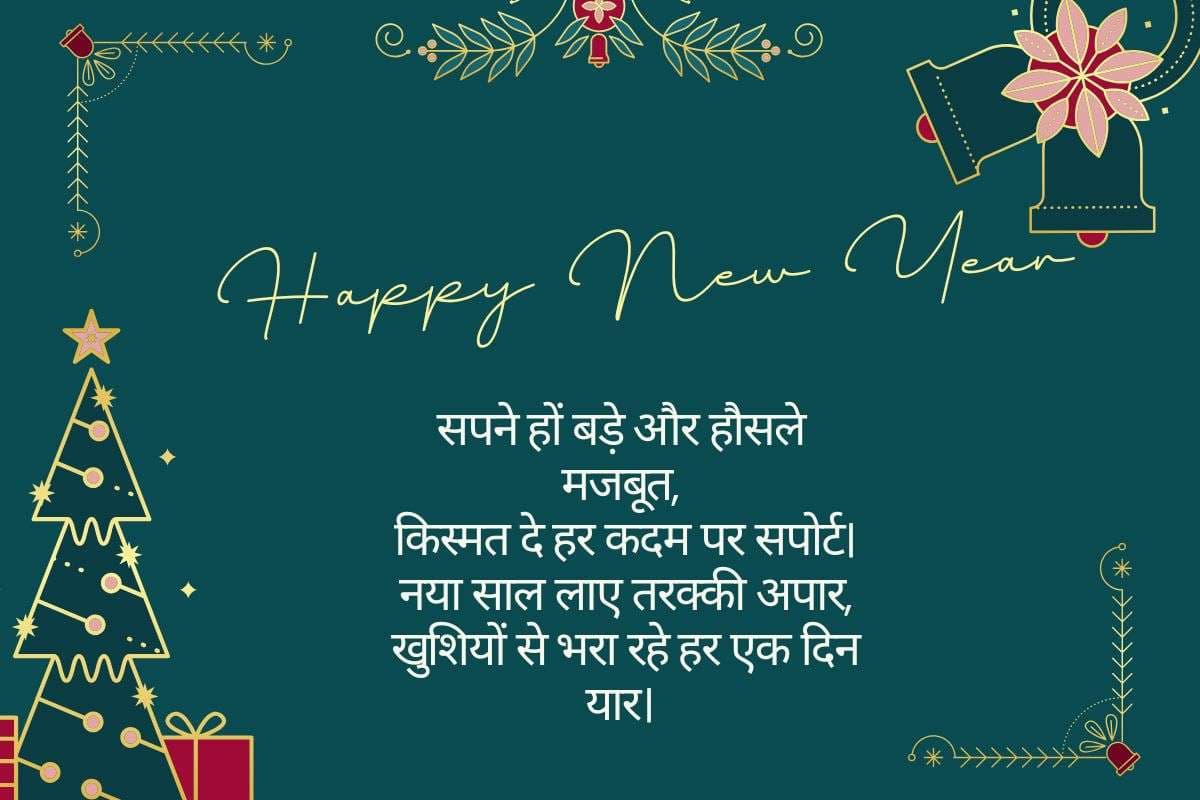 Happy New Year
सपने हों बड़े और हौसले
मजबूत,
किस्मत दे हर कदम पर सपोर्ट।
नया साल लाए तरक्की अपार,
खुशियों से भरा रहे हर एक दिन
यार।